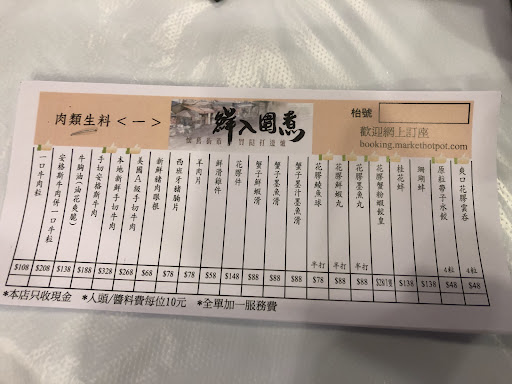 肉類生料 <一>
鮮入圍煮
枱號
歡迎網上訂座
booking.markethotpot.com
爽口花膠雲吞 4粒 $48
原粒帶子水餃 4粒 $48
珊瑚蚌 $138
桂花蚌 $138
花膠蟹粉蝦餃皇
花膠墨魚丸 半打 $88
花膠鮮蝦丸 半打 $88
花膠鯪魚球 半打 $78
蟹子墨汁墨魚滑 $88
蟹子墨魚滑 $88
蟹子鮮蝦滑 $88
花膠件 $148
鮮滑雞件 $58
羊肉片 $78
西班牙豬腩片 $78
新鮮豬肉眼根 $68
美國A級手切牛肉 $268
本地新鮮手切牛肉 $328
手切安格斯牛肉 $188
牛胸油(油花爽脆) $138
安格斯牛肉併一口牛粒 $208
一口牛肉粒 $108
*本店只收現金 *人頭/醬料費每位10元 *全單加一服務費